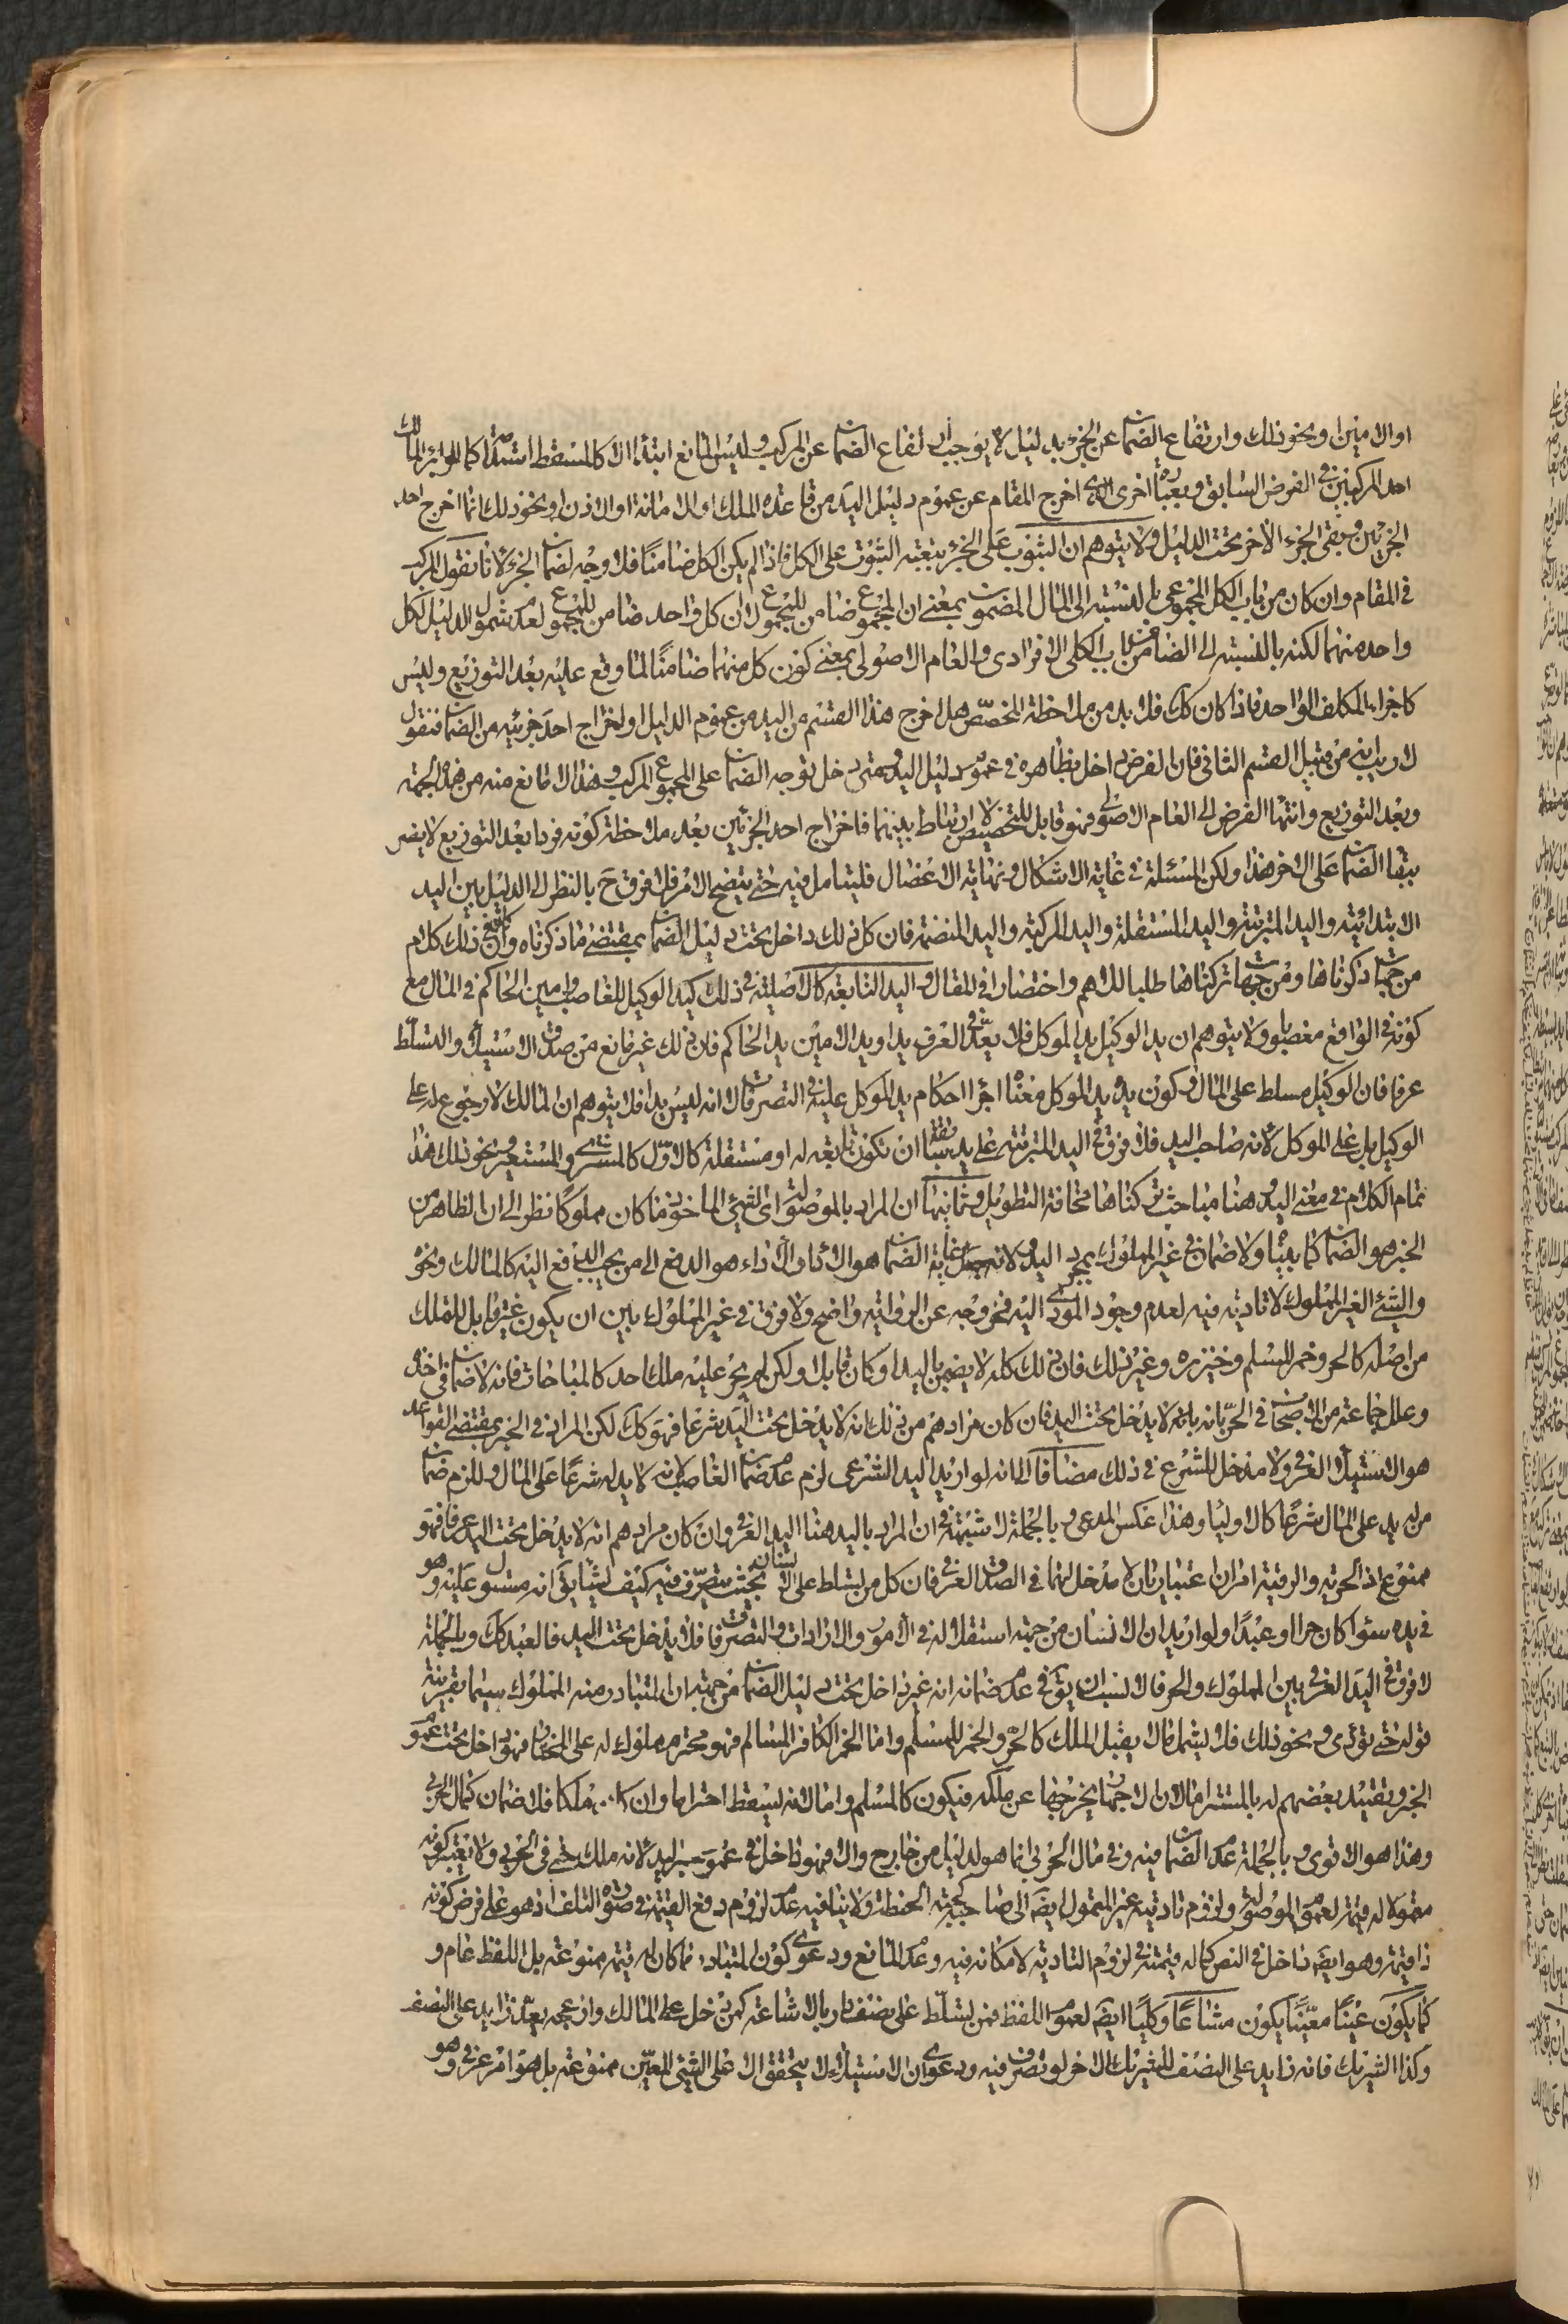 او الامينين او نحو ذلك وارتفاع الضمان عن الجزء بدليل لا يوجب ارتفاع الضمان عن المركب وليس المانع ابتداء الا كالمسقط استدامة كما لو ابرء المالك
احد المركبين في الفرض السابق وبعبارة اخرى الذي اخرج المقام عن عموم دليل اليد من قاعدة الملك او الامانة او الاذن او نحو ذلك انما اخرج احد
الجزئين ويبقى الجزء الاخر تحت الدليل ولا يتوهم ان الثبوت على الجزء بتبعية الثبوت على الكل فاذا لم يكن الكل ضامنا فلا وجه لضمان الجزء لانا نقول المركب
في المقام وان كان من باب الكل المجموعي بالنسبة الى المال المضمون بمعنى ان المجموع ضامن للمجموع لا ان كل واحد ضامن للمجموع لعدم شمول الدليل لكل
واحد منهما لكنه بالنسبة الى الضامن من باب الكلي الافرادي والعام الاصولي بمعنى كون كل منهما ضامنا لما وقع عليه بعد التوزيع وليس
كاجزاء المكلف الواحد فاذا كان كك فلا بد من ملاحظة المخصص هل اخرج هذا القسم من اليد من عموم الدليل او اخراج احد جزئيه من الضمان فنقول
لا ريب انه من قبيل القسم الثاني فان الفرض داخل بظاهره في عموم دليل اليد ومتى دخل توجه الضمان على المجموع المركب وهذا لا مانع منه من هذه الجهة
وبعد التوزيع وانتهاء الفرض الى العام الاصولي فهو قابل للتخصيص لا ارتباط بينهما فاخراج احد الجزئين بعد ملاحظة كونه فردا بعد التوزيع لا يضر
ببقاء الضمان على الاخر هذا ولكن المسئلة في غاية الاشكال ونهاية الاعضال فليتامل فيه حتى يتضح الامر فلا فرق ح بالنظر الى الدليل بين اليد
الابتدائية واليد المترتبة واليد المستقلة واليد المركبة واليد المنضمة فان كل ذلك داخل تحت دليل الضمان بمقتضى ما ذكرناه وان كان في ذلك كلام
من جهات ذكرناها ومن جهات تركناها طلبا للاهم واختصارا في المقال واليد التابعة كالاصلية في ذلك كيد الوكيل للغاصب وامين الحاكم في المال مع
كونه في الواقع مغصوبا ولا يتوهم ان يد الوكيل يد الموكل فلا يعد في العرف يدا ويد الامين يد الحاكم فان ذلك غير مانع من صدق الاستيلاء والتسلط
عرفا فان الوكيل مسلط على المال وكون يده يد الموكل معناه اجراء احكام يد الموكل عليه في التصرفات لا انه ليس يدا فلا يتوهم ان المالك لا رجوع له على
الوكيل بل على الموكل لانه صاحب اليد فلا فرق في اليد المترتبة على يد سابقة ان تكون تابعة له او مستقلة كالاول كالمشترى والمستعير ونحو ذلك هذا
تمام الكلام في معنى اليد وهنا مباحث تركناها مخافة التطويل وثانيها ان المراد بالموصولة اى الشيء الماخوذ ما كان مملوكا نظرا الى ان الظاهر من
الخبر هو الضمان كما بينا ولا ضمان في غير المملوك بمجرد اليد ولانه جعل غاية الضمان هو الاداء والاداء هو الدفع الى من يجب الدفع اليه كالمالك ونحوه
والشيء الغير المملوك لا تادية فيه لعدم وجود المودى اليه فخروجه عن الرواية واضح ولا فرق في غير المملوك بين ان يكون غير قابل للملك
من اصله كالحر وخمر المسلم وخنزيره وغير ذلك فان ذلك كله لا يضمن باليد او كان قابلا ولكن لم يجر عليه ملك احد كالمباحات فانه لا ضمان في اخذه
وعلل جماعة من الاصحاب في الحر بانه لا يدخل تحت اليد فان كان مرادهم من ذلك انه لا يدخل تحت اليد شرعا فهو كك لكن المراد في الخبر بمقتضى القواعد
هو الاستيلاء العرفي ولا مدخل للشرع في ذلك مضافا الى انه لو اريد اليد الشرعي لزم عدم ضمان الغاصب لانه لا يد له شرعا على المال وللزم ضمان
من له يد على المال شرعا كالاولياء وهذا عكس المدعى وبالجملة لا شبهة في ان المراد باليد هنا اليد العرفي وان كان مرادهم انه لا يدخل تحت اليد عرفا فهو
ممنوع اذ الحرية والرقية امران اعتباريان لا مدخل لهما في الصدق العرفي فان كل من يسلط على انسان بحيث يتصرف فيه كيف يشاء يق انه مستول عليه وهو
في يده سواء كان حرا او عبدا ولو اريد ان الانسان من جهة استقلاله في الامور والارادات والتصرفات لا يدخل تحت اليد فالعبد كك وبالجملة
لا فرق في اليد العرفي بين المملوك والحر فالانسب ان يق في عدم ضمانه انه غير داخل تحت دليل الضمان من جهة ان المتبادر منه المملوك سيما بقرينة
قوله حتى تؤدى ونحو ذلك فلا يشمل ما لا يقبل الملك كالحر والخمر للمسلم واما الخمر للكافر المسالم فهو محترم مملوك له على المختار فهو داخل تحت عموم
الخبر وتقييد بعضهم له بالمستتر اما لان الاجهار يخرجها عن ملكه فيكون كالمسلم واما لانه يسقط احترامها وان كان ملكا فلا ضمان كمال الحربي
وهذا هو الاقوى وبالجملة عدم الضمان فيه وفي مال الحربي انما هو لدليل من خارج والا فهو داخل في عموم خبر اليد لانه ملك حتى في الحربي ولا يعتبر كونه
متمولا له قيمة لعموم الموصولة ولزوم تادية غير المتمول ايضا الى صاحبه كحبة الحنطة ولا ينافيه عدم لزوم دفع القيمة في صورة التلف اذ هو على فرض كونه
ذا قيمة وهو ايضا داخل في النص كما له قيمته في لزوم التادية لامكانه فيه وعدم المانع ودعوى كون المتبادر ما كان له قيمة ممنوعة بل اللفظ عام و
كما يكون عينا معينا يكون مشاعا وكليا ايضا لعموم اللفظ فمن تسلط على نصف دار بالاشاعة كمن دخل على المالك وازعجه يعد ذا يد على النصف
وكذا الشريك فانه ذا يد على النصف للشريك الاخر لو تصرف فيه ودعوى ان الاستيلاء لا يتحقق الا على الشيء المعين ممنوعة بل هو امر عرفي وهو